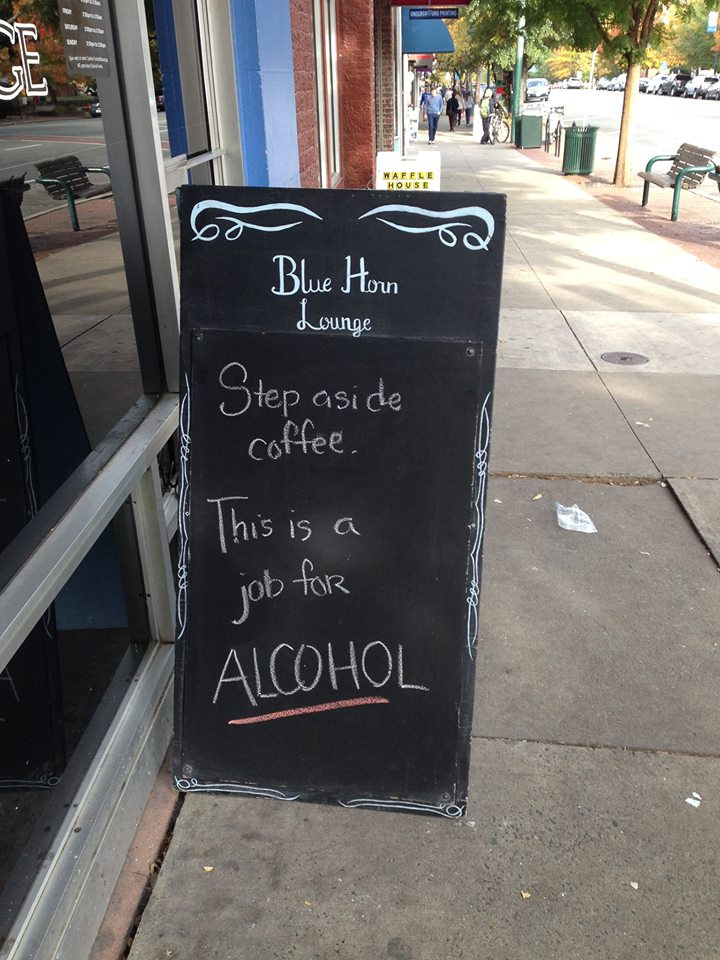 GE
FRIDAY
SATURDAY
SUNDAY
UNDERGROUND PRINTING
WAFFLE
HOUSE
Blue Horn
Lounge
Step aside
coffee.
This is a
job for
ALCOHOL